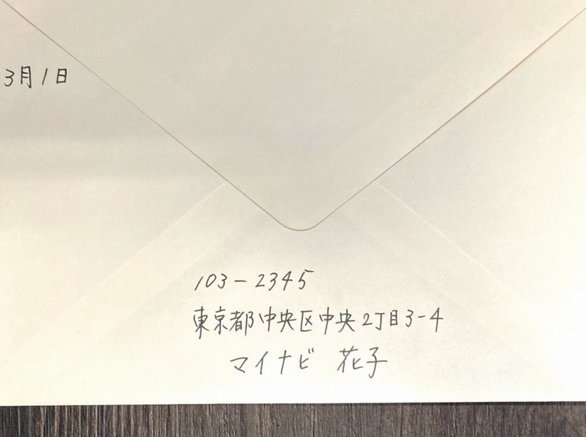 3月1日
103-2345
東京都中央区中央2丁目3-4
マイナビ 花子